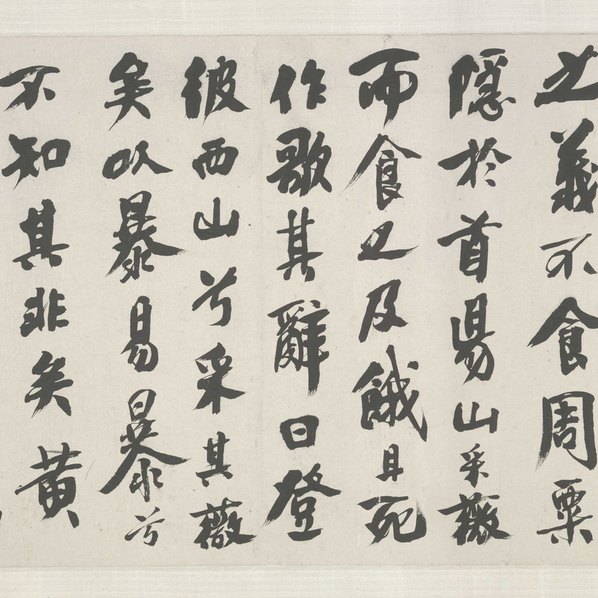 之義不食周粟
隱於首陽山采薇
而食之及餓且死
作歌其辭曰登
彼西山兮采其薇
矣以暴易暴兮
不知其非矣黃